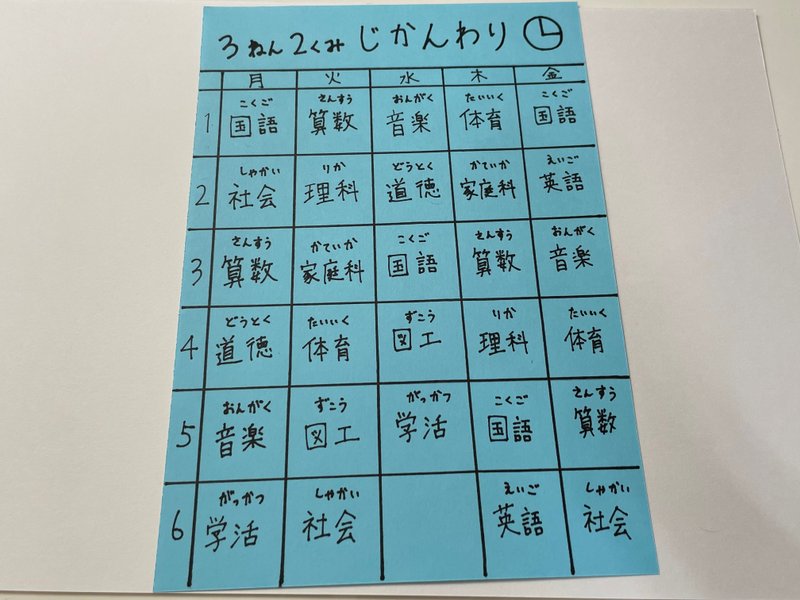 3ねん2くみ じかんわり
月 火 水 木 金
こくご さんすう おんがく たいいく こくご
1 国語 算数 音楽 体育 国語
しゃかい りか どうとく かていか えいご
2 社会 理科 道徳 家庭科 英語
さんすう かていか こくご さんすう おんがく
3 算数 家庭科 国語 算数 音楽
どうとく たいいく ずこう りか たいいく
4 道徳 体育 図工 理科 体育
おんがく ずこう がっかつ こくご さんすう
5 音楽 図工 学活 国語 算数
がっかつ しゃかい えいご しゃかい
6 学活 社会 英語 社会